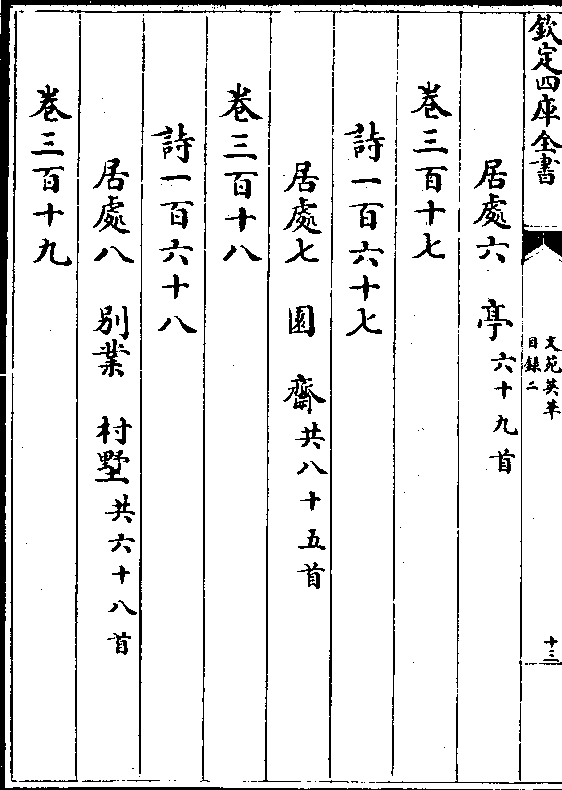 欽定四庫全書
文苑英華
目錄二
十三
居處六 亭六十九首
卷三百十七
詩一百六十七
居處七 園 齋共八十五首
卷三百十八
詩一百六十八
居處八 別業 村墅共六十八首
卷三百十九